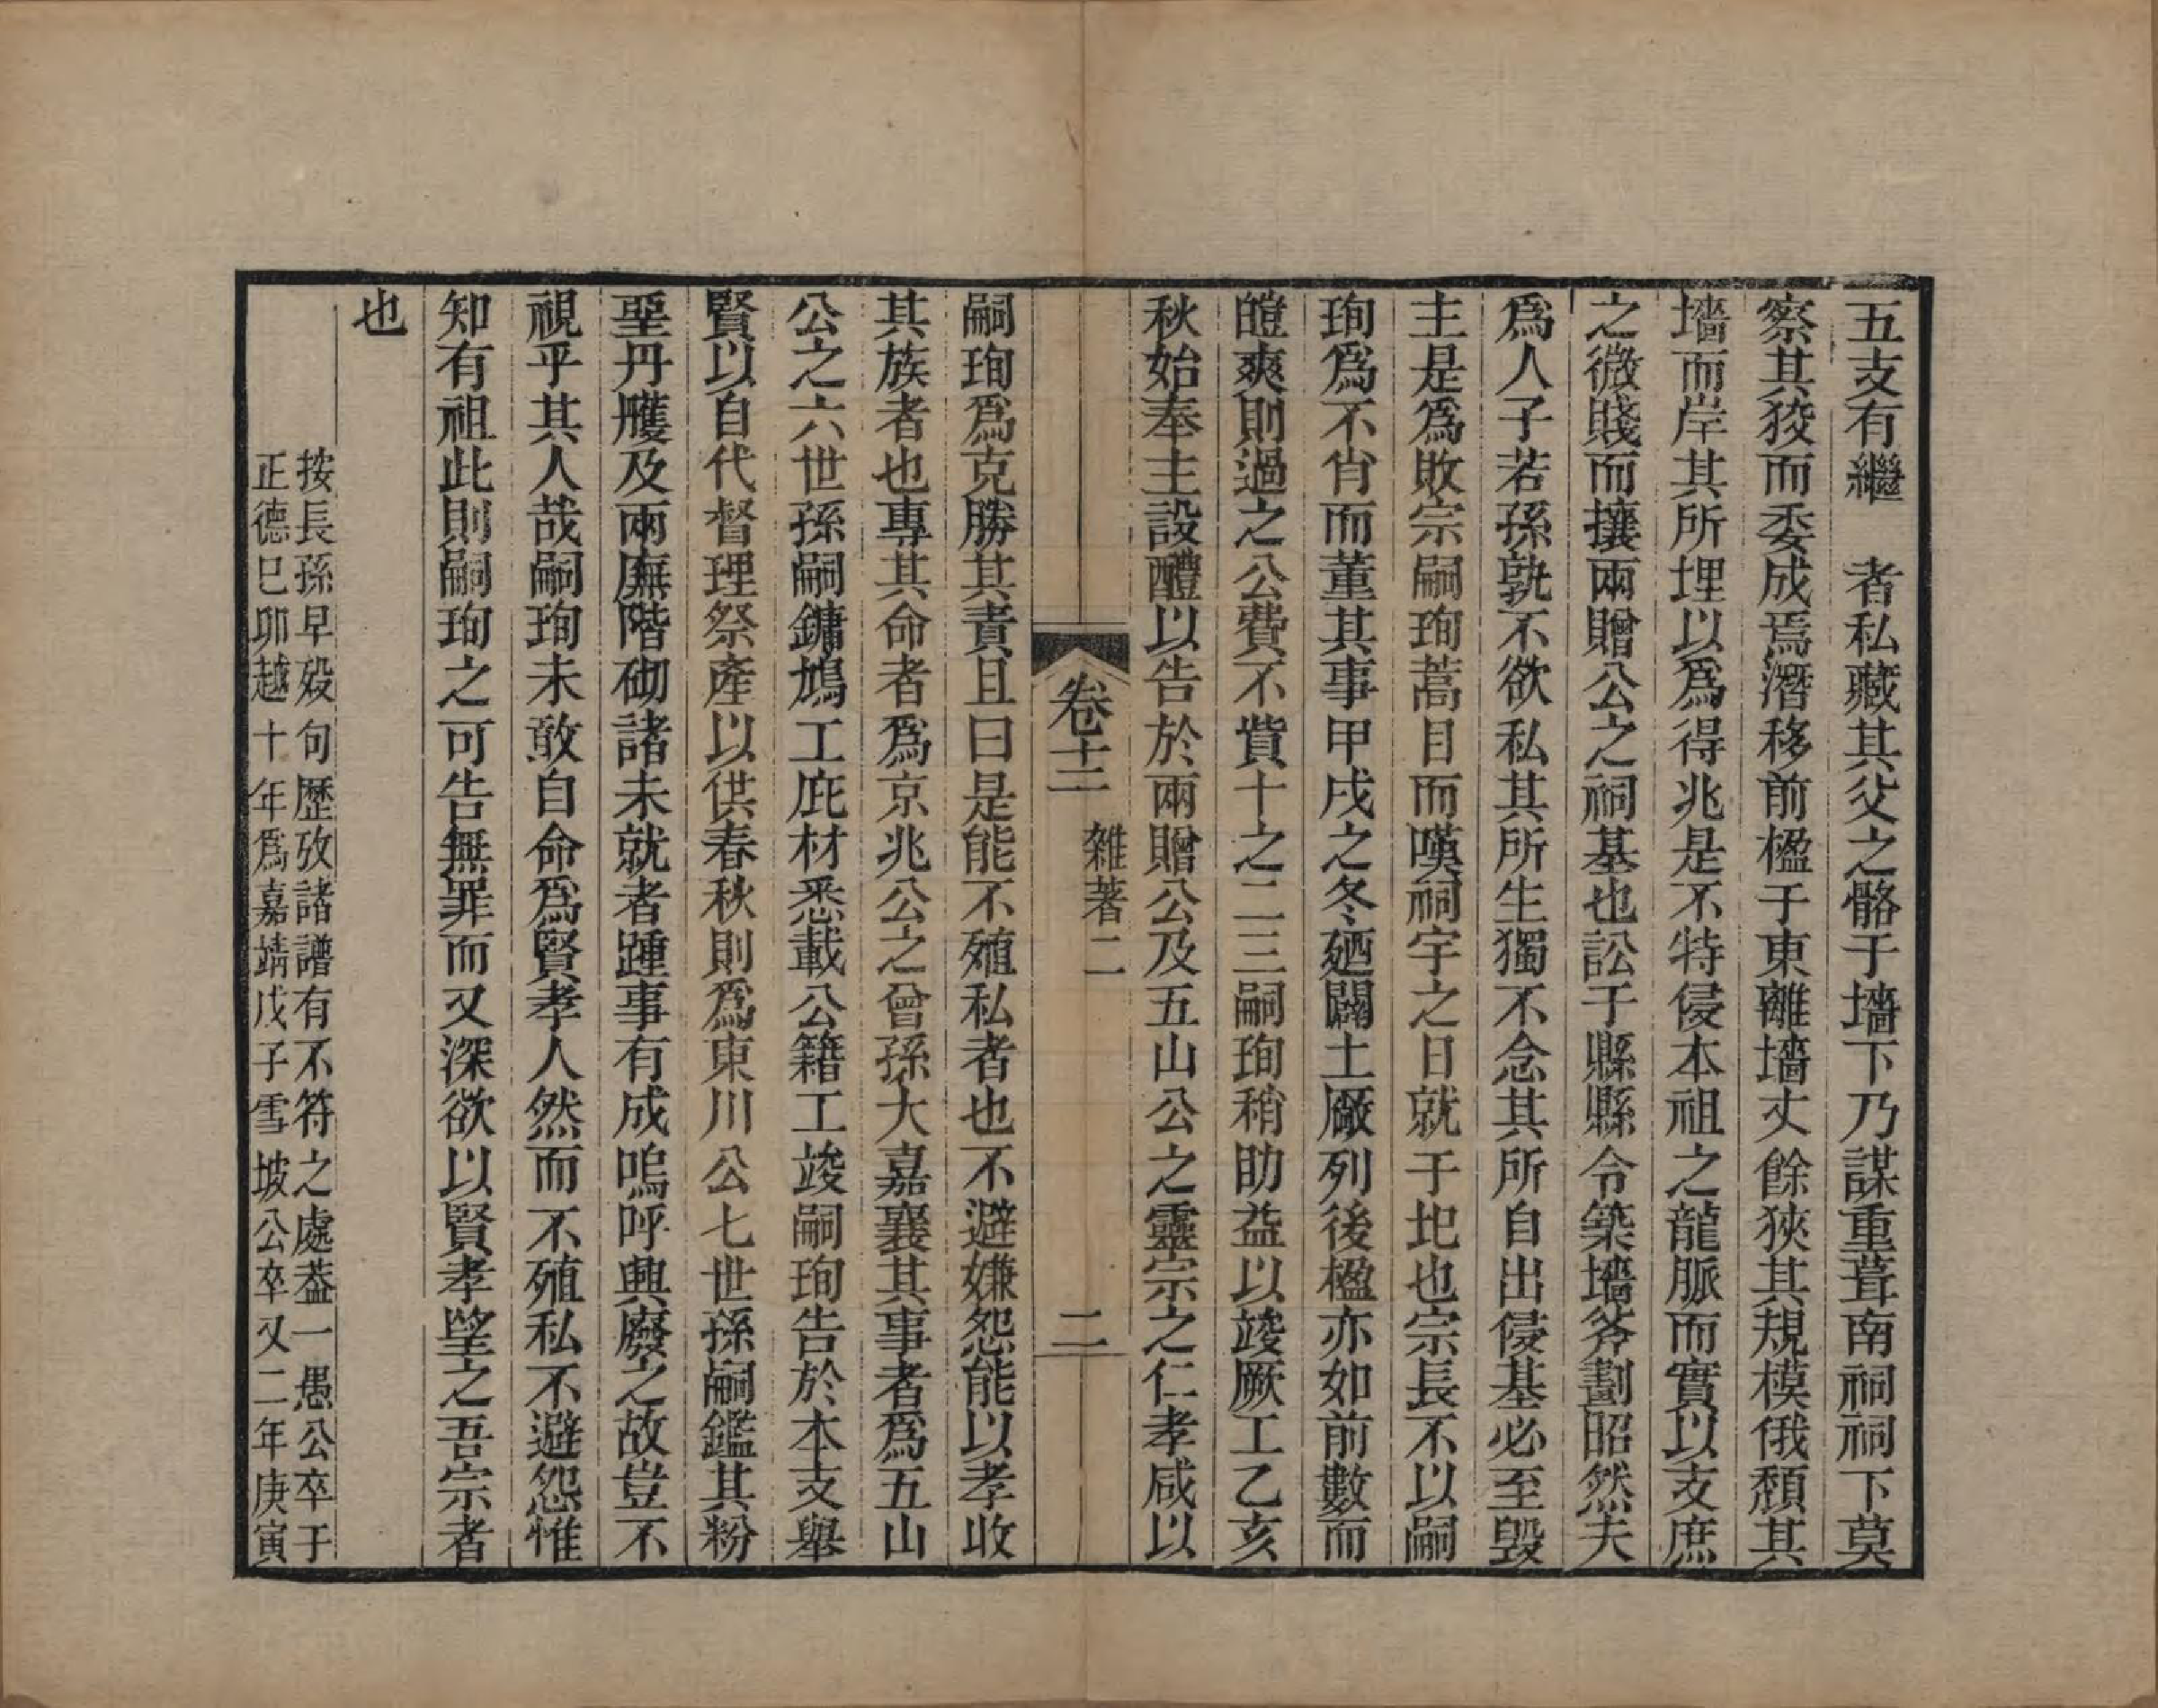 五支有繼　者私藏其父之骼于墻下乃謀重葺南祠祠下莫
察其狡而委成焉潛移前楹于東離墻丈餘狹其規模俄頹其
墻而岸其所埋以爲得兆是不特侵本祖之龍脈而實以支庶
之微賤而攘兩贈公之祠基也訟于縣縣令築墻斧劃昭然夫
爲人子若孫孰不欲私其所生獨不念其所自出侵基必至毀
主是爲敗宗嗣珣蒿目而嘆祠宇之日就于圯也宗長不以嗣
珣爲不肖而董其事甲戌之冬廼闢土厰列後楹亦如前數而
皚爽則過之公費不貲十之二三嗣珣稍助益以竣厥工乙亥
秋始奉主設醴以告於兩贈公及五山公之靈宗之仁孝咸以
卷十二　雜著二　二
嗣珣爲克勝其責且曰是能不殖私者也不避嫌怨能以孝收
其族者也專其命者爲京兆公之曾孫大嘉襄其事者爲五山
公之六世孫嗣鏞鳩工庇材悉載公籍工竣嗣珣告於本支舉
賢以自代督理祭產以供春秋則爲東川公七世孫嗣鑑其粉
堊丹雘及兩廡階砌諸未就者踵事有成嗚呼興廢之故豈不
視乎其人哉嗣珣未敢自命爲賢孝人然而不殖私不避怨惟
知有祖此則嗣珣之可告無罪而又深欲以賢孝望之吾宗者
也
按長孫早歿句歷攷諸譜有不符之處葢一愚公卒于
正德巳卯越十年爲嘉靖戊子雪坡公卒又二年庚寅